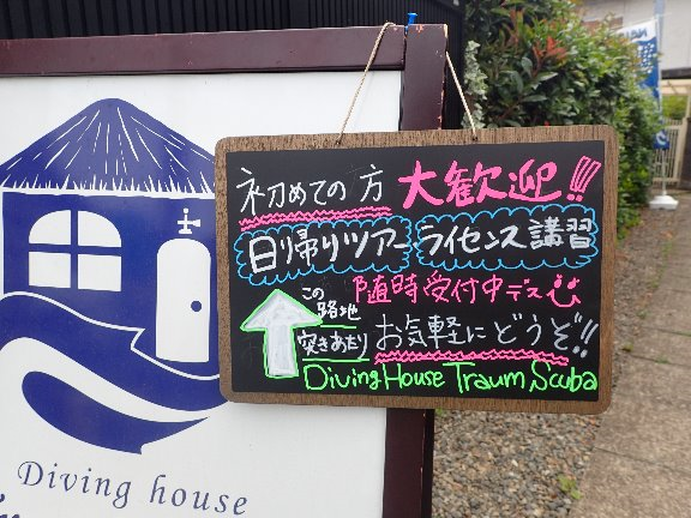 初めての方 大歓迎!!!
日り帰りツアー ライセンス講習
随時受付中デス
この
路地
突きあたり
お気軽にどうぞ!!
Diving House Traum Scuba
Diving house